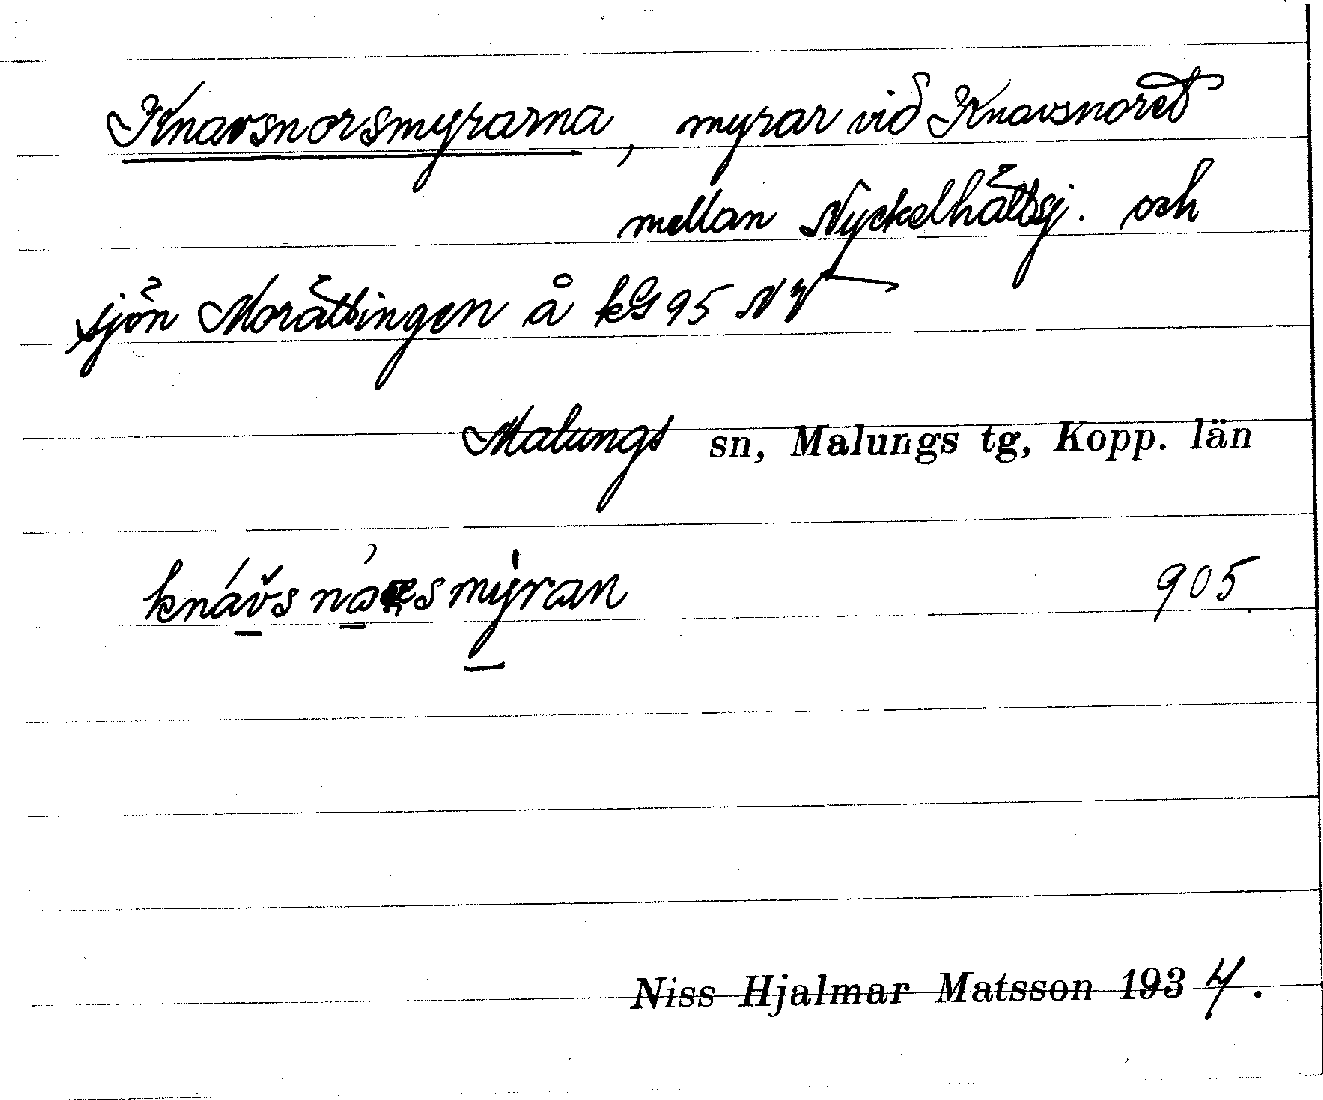 Knavsnorsmyrarna, myrar vid Knavsnoret
mellan Nyckelhåttsj. och
sjön Moråttingen å kG 95 NV
Malungs sn, Malungs tg, Kopp. län
905
Niss Hjalmar Matsson 1934.